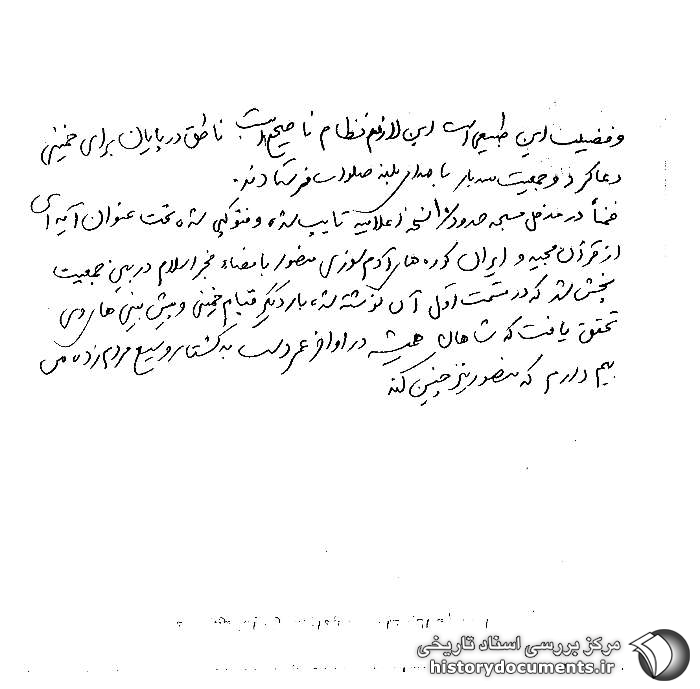 و فضیلت این طبیعی است این لازم نظام ناصحیح است ناطق در پایان برای خمینی
دعا کرد و جمعیت سه بار با صدای بلند صلوات فرستادند.
ضمناً در مدخل مسجد حدود نسخه اعلامیه تایپ شده و فتوکپی شده تحت عنوان آیه‌ای
از قرآن مجید و ایران کوره‌های آدم‌سوزی منصور بامضاء فجر اسلام در بین جمعیت
پخش شد که در قسمت اول آن نوشته شده بار دیگر قیام خمینی و پیش بینی های وی
تحقق یافت که شاهان همیشه در اواخر عمر دست به کشتار وسیع مردم زده می
بیم دارم که منصور نیز چنین کند
مرکز بررسی اسناد تاریخی
historydocuments.ir